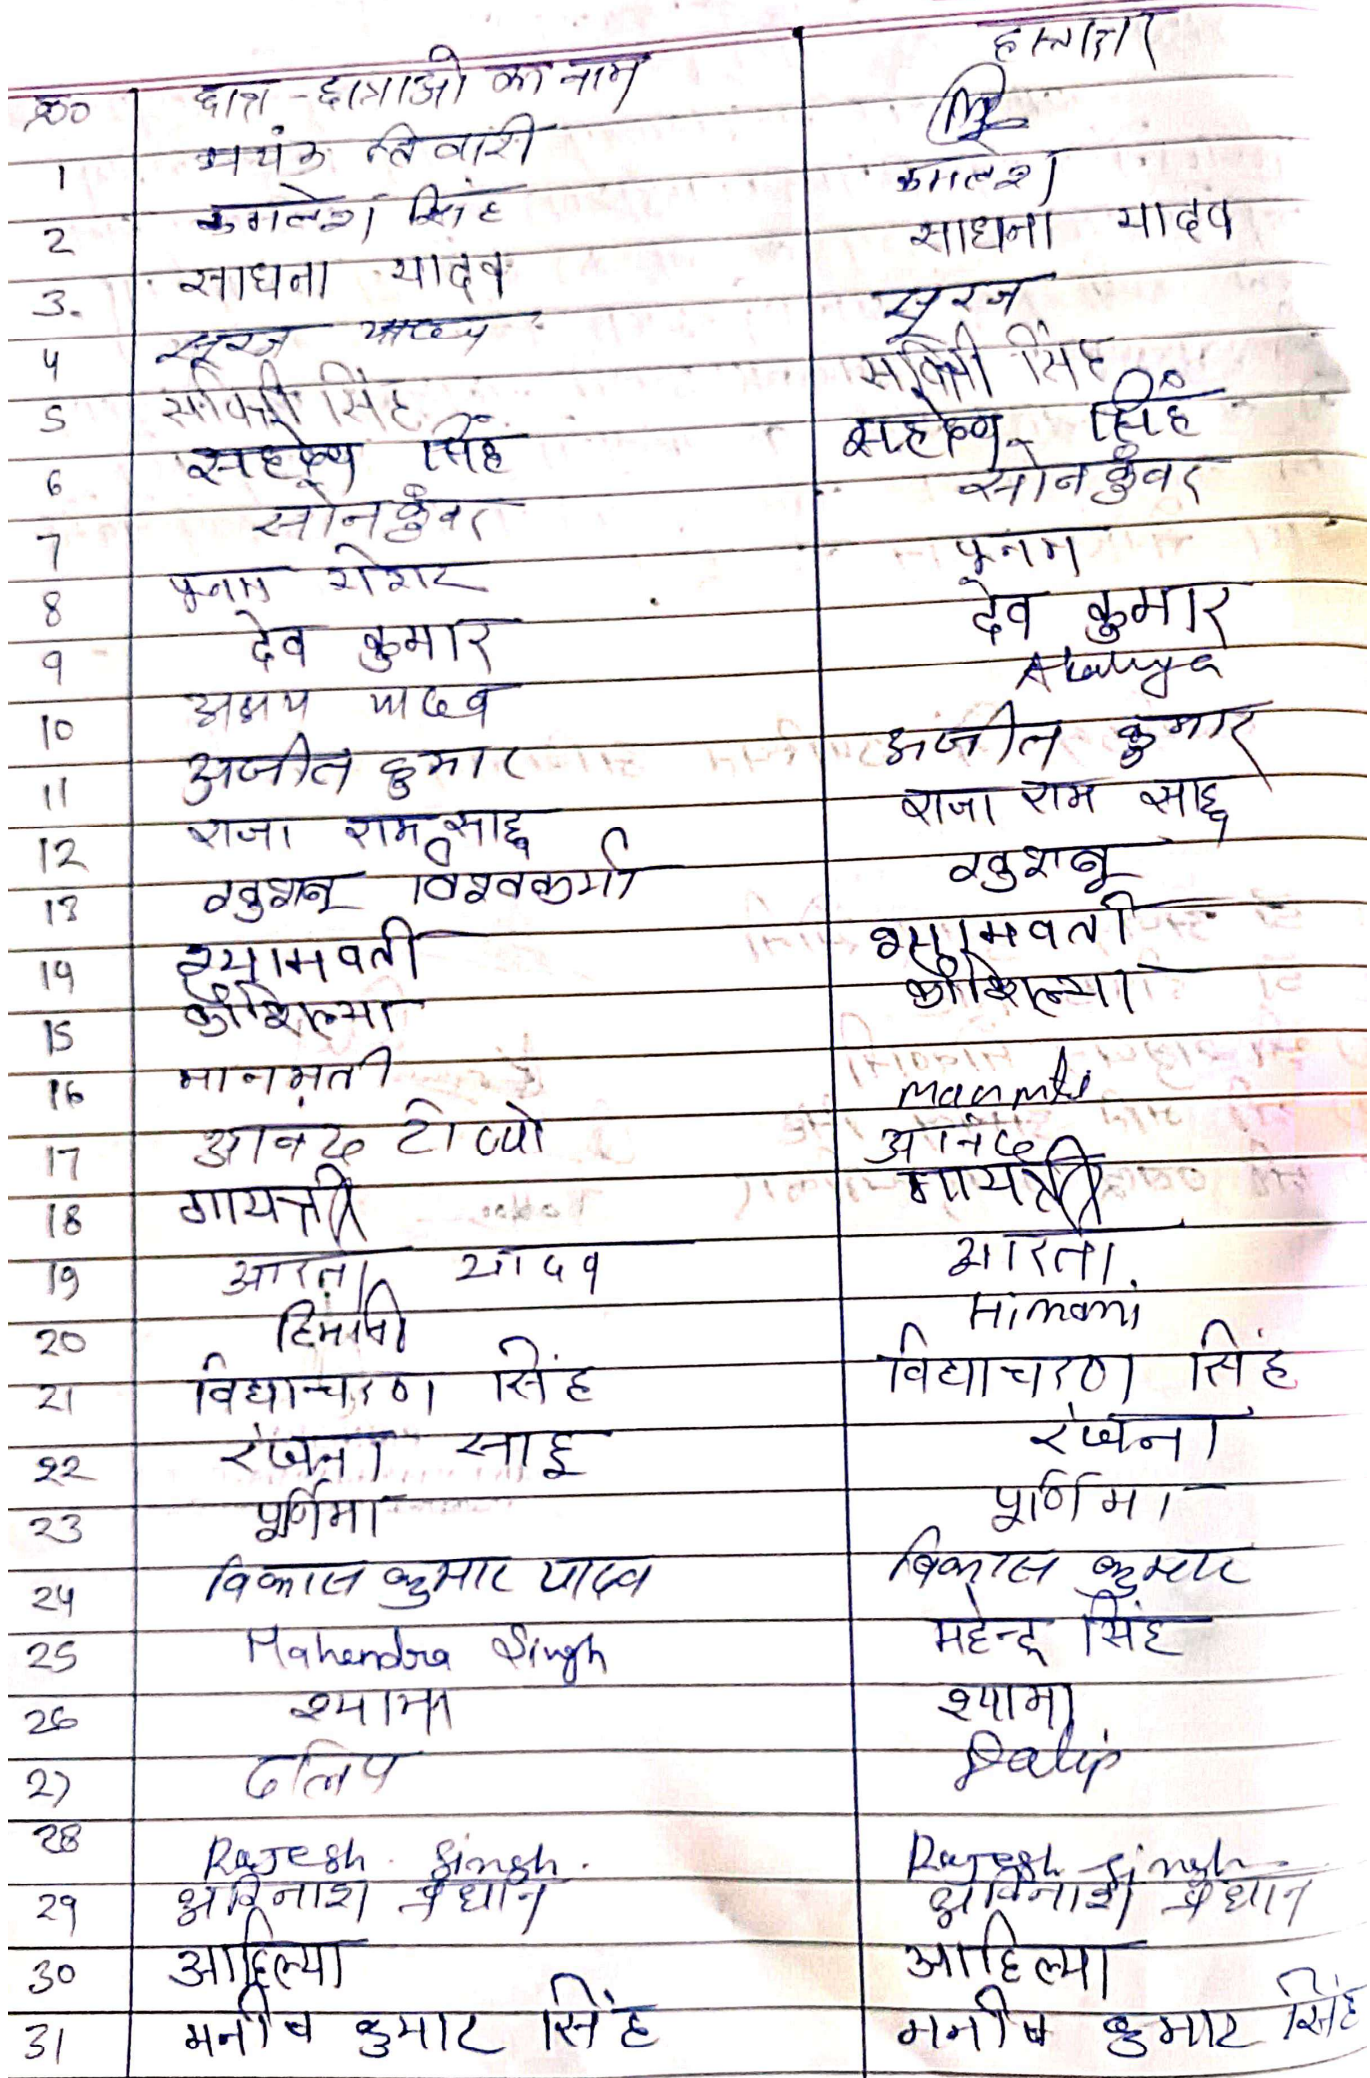 क्र० छात्र-छात्राओ का नाम हस्ताक्षर
1 मयंक तिवारी
2 कमलेश सिंह कमलेश
3. साधना यादव साधना यादव
4 सूरज यादव सूरज
5 सावित्री सिंह सावित्री सिंह
6 सिंह सिंह
7 सोनकुँवर सोनकुँवर
8 पूनम पूनम
9 देव कुमार देव कुमार
10 अक्षय यादव
11 अजीत कुमार अजीत कुमार
12 राजा राम साहू राजा राम साहू
13 खुशबू विश्वकर्मा खुशबू
14 श्यामवती श्यामवती
15 कौशिल्या कौशिल्या
16 मानमती manmti
17 आनंद टोप्पो आनंद
18 गायत्री गायत्री
19 आरती यादव आरती
20 हिमानी Himani
21 विद्याचरण सिंह विद्याचरण सिंह
22 रंजना साहू रंजना
23 पूर्णिमा पूर्णिमा
24 विकास कुमार यादव विकास कुमार
25 Mahendra Singh महेन्द्र सिंह
26 श्यामा श्यामा
27 दलिप Dalip
28 Rajesh Singh. Rajesh Singh
29 अविनाश प्रधान अविनाश प्रधान
30 आहिल्या आहिल्या
31 मनीष कुमार सिंह मनीष कुमार सिंह